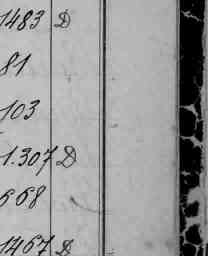 1483 D
81
103
1.307 D
668
1467 D